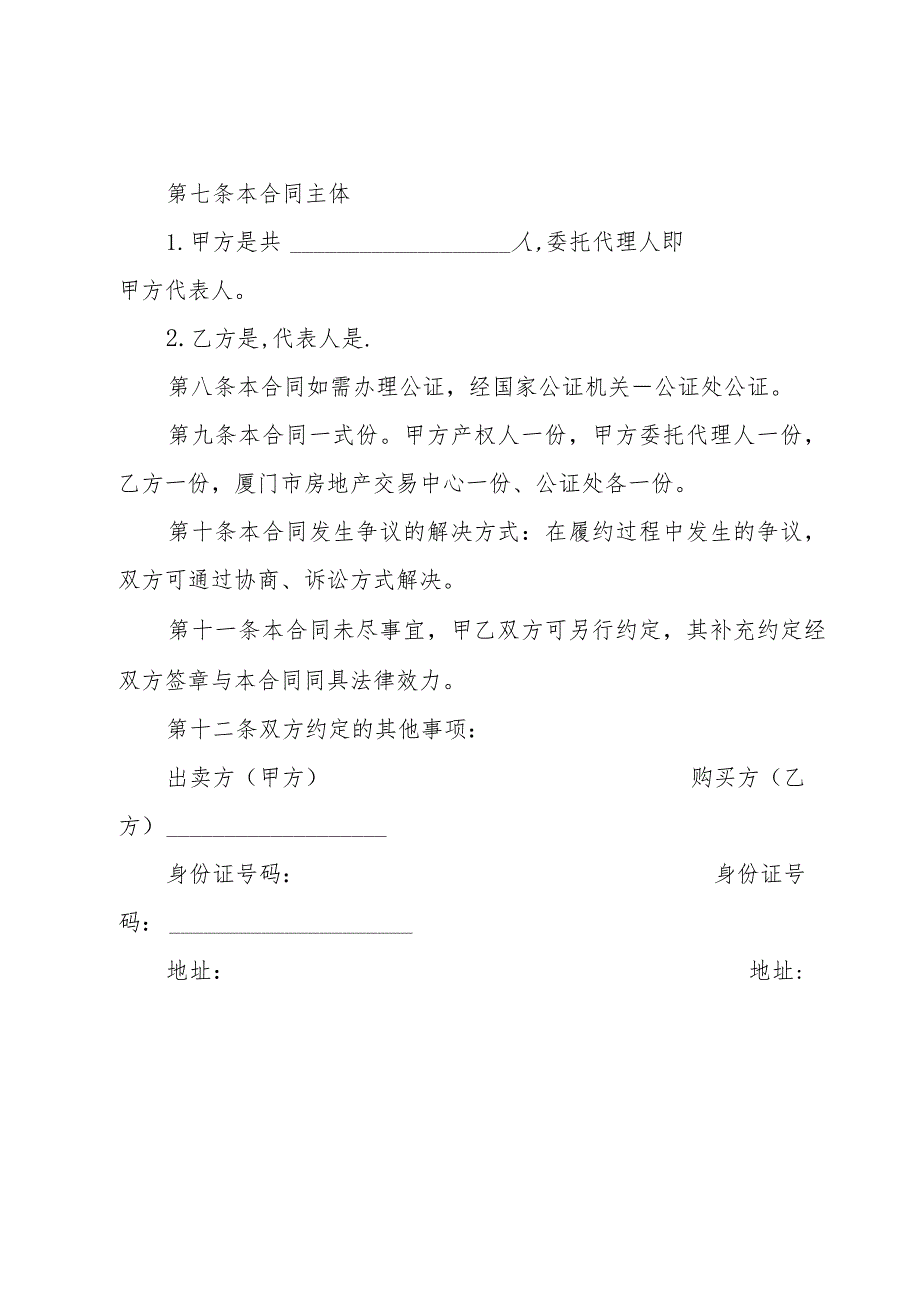 第七条本合同主体
1.甲方是共 ___________________人,委托代理人即
甲方代表人。
2.乙方是,代表人是.
第八条本合同如需办理公证，经国家公证机关－公证处公证。
第九条本合同一式份。甲方产权人一份，甲方委托代理人一份，
乙方一份，厦门市房地产交易中心一份、公证处各一份。
第十条本合同发生争议的解决方式：在履约过程中发生的争议，
双方可通过协商、诉讼方式解决。
第十一条本合同未尽事宜，甲乙双方可另行约定，其补充约定经
双方签章与本合同同具法律效力。
第十二条双方约定的其他事项：
出卖方（甲方） 购买方（乙
方）___________________
身份证号码： 身份证号
码：_____________________
地址： 地址: